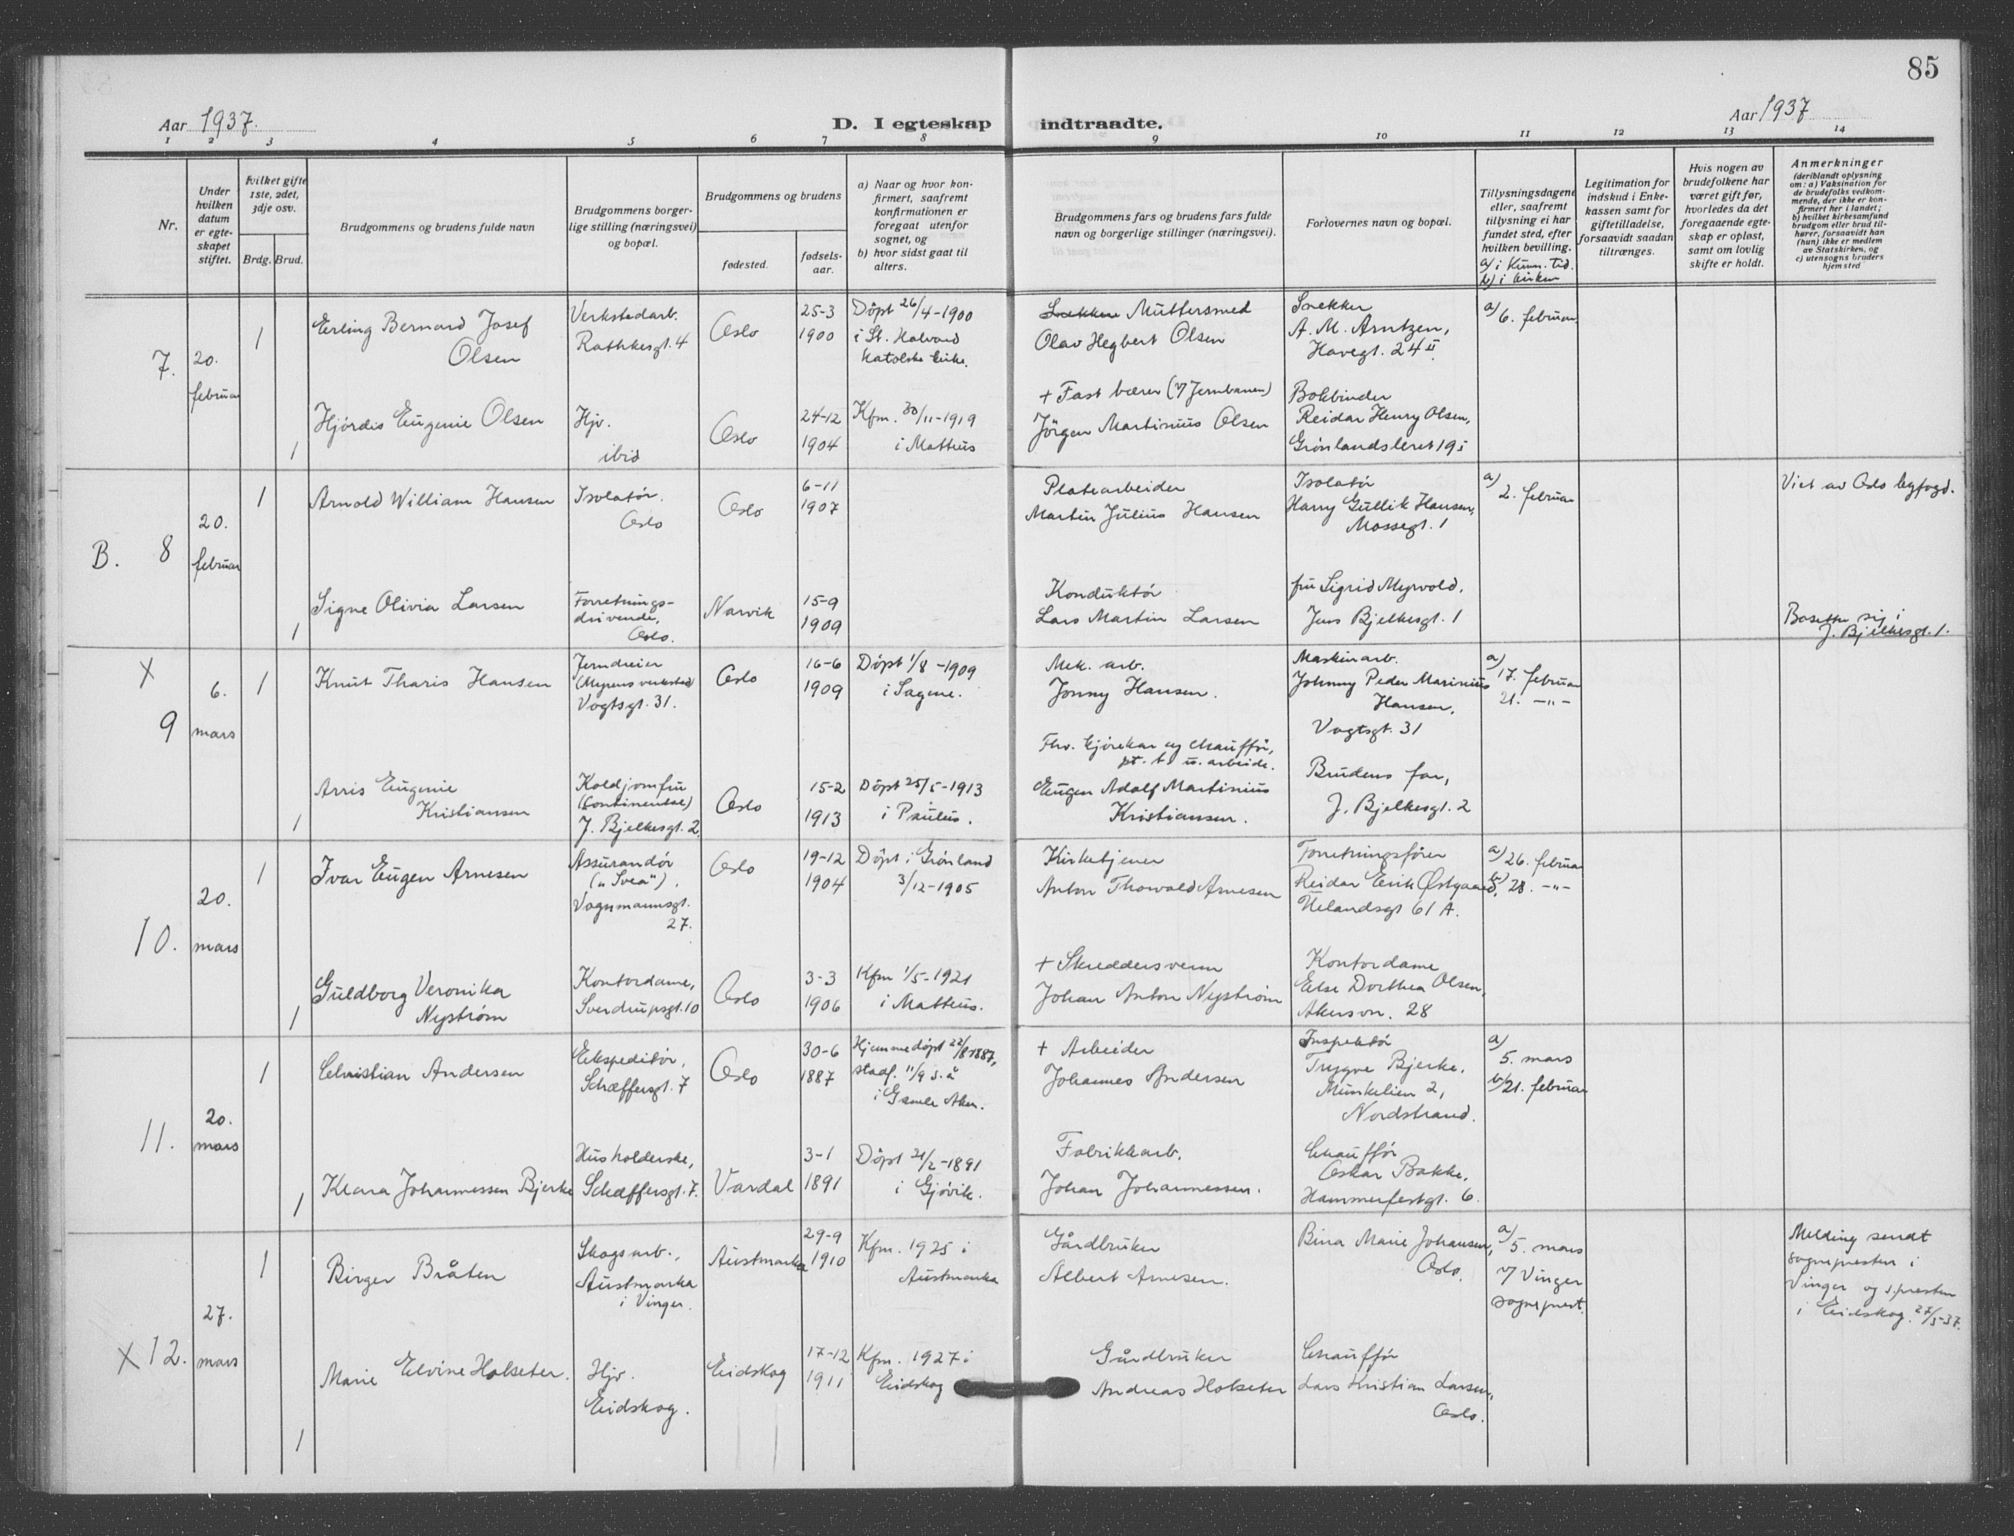 85
Aar 1937.
D. I egteskap indtraadte.
Aar 1937
1 2 3 4 5 6 7 8 9 10 11 12 13 14
Nr.
Under hvilken datum er egteskapet stiftet.
Hvilket gifte 1ste, 2det, 3dje osv.
Brdg. Brud.
Brudgommens og brudens fulde navn
Brudgommens borgerlige stilling (næringsvei) og bopæl.
Brudgommens og brudens
fødested.
fødselsaar.
a) Naar og hvor konfirmert, saafremt konfirmationen er foregaat utenfor sognet, og
b) hvor sidst gaat til alters.
Brudgommens fars og brudens fars fulde navn og borgerlige stillinger (næringsvei).
Forlovernes navn og bopæl.
Tillysningsdagene eller, saafremt tillysning ei har fundet sted, efter hvilken bevilling.
a) i Kunn. tid.
b) i kirken
Legitimation for indskud i Enkekassen samt for giftetilladelse, forsaavidt saadan tiltrænges.
Hvis nogen av brudefolkene har været gift før, hvorledes da det foregaaende egteskap er opløst, samt om lovlig skifte er holdt.
Anmerkninger
(deriblandt oplysning om: a) Vaksination for de brudefolks vedkommende, der ikke er konfirmert her i landet;
b) hvilket kirkesamfund brudgom eller brud tilhører, forsaavidt han (hun) ikke er medlem av Statskirken, og
c) utensogns bruders hjemsted
7.
20. februar
1
Erling Bernard Josef
Olsen
Verkstedarb.
Rathkesgt. 4
Oslo
25-3
1900
Döpt 26/4-1900
i St. Halvard
katolske kirke.
Muttersmed
Olav Hegbert Olsen
Snekker
A. M. Arntzen,
Havegt. 24 II
a) 6. februar
1
Hjördis Eugenie Olsen
Hjv.
ibid
Oslo
24-12
1904
Kfm. 30/11-1919
i Matteus
+ Fast bærer (v/ Jernbanen)
Jörgen Martinius Olsen
Bokbinder
Reidar Henry Olsen,
Grönlandsleret 19 I
B. 8
20.
februar
1
Arnold William Hansen
Isolatör.
Oslo
Oslo
6-11
1907
Platearbeider
Martin Julius Hansen
Isolatör
Harry Gullik Hansen,
Mossegt. 1
a)
2. februar
Viet av Oslo byfogd.
1
Signe Olivia Larsen
Forretnings-
drivende,
Oslo.
Narvik
15-9
1909
Konduktör
Lars Martin Larsen
fru Sigrid Myrvold,
Jens Bjelkesgt. 1
Bosetter sig i
J. Bjelkesgt. 1.
X
9
6.
mars
1
Knut Tharis Hansen
Jerndreier
(Myrens verksted)
Vogtsgt. 31.
Oslo
16-6
1909
Döpt 1/8-1909
i Sagene.
Mek. arb.
Jonny Hansen.
Maskinarb.
Johnny Peder Marinius
Hansen,
Vogtsgt. 31
a)
17. februar
21. -"-
1
Arris Eugenie
Kristiansen
Koldjomfru
(Continental)
J. Bjelkesgt. 2.
Oslo
15-2
1913
Döpt 25/5-1913
i Paulus.
Fhv. kjörekar og chaufför,
pt. t. u. arbeide.
Eugen Adolf Martinius
Kristiansen.
Brudens far,
J. Bjelkesgt. 2
10.
20.
mars
1
Ivar Eugen Arnesen
Assurandör
("Svea").
Vognmannsgt.
27.
Oslo
19-12
1904
Döpt i Grönland
3/12-1905
Kirketjener
Anton Thorvald Arnesen
Forretningsförer
Reidar Erik Østgaard,
Uelandsgt 61 A.
a) 26. februar
b) 28. -"-
1
Guldborg Veronika
Nyström
Kontordame,
Sverdrupsgt. 10
Oslo
3-3
1906
Kfm 1/5-1921
i Matteus.
+ Skreddersvenn
Johan Anton Nyström
Kontordame
Else Dorthea Olsen,
Akersvn. 28
11.
20.
mars
1
Christian Andersen
Ekspeditör,
Schæffersgt. 7
Oslo
30-6
1887
Hjemmedöpt 22/8 1887,
stadf. 11/9 s. å
i Gamle Aker.
+ Arbeider
Johannes Andersen
Inspektör
Trygve Bjerke,
Munkelien 2,
Nordstrand.
a)
5. mars
b) 21. februar
1
Klara Johannessen Bjerke
Husholderske,
Schæffersgt. 7.
Vardal
3-1
1891
Döpt 21/2-1891
i Gjövik.
Fabrikkarb.
Johan Johannessen.
Chaufför
Oskar Bakke,
Hammerfestgt. 6.
X 12.
27.
mars
1
Birger Bråten
Skogsarb.,
Austmarka
i Vinger.
Austmarka
29-9
1910
Kfm. 1925 i
Austmarka
Gårdbruker
Albert Arnesen.
Bina Marie Johansen,
Oslo.
a)
5. mars
v/ Vinger
sogneprest.
Melding sendt
sognepresten i
Vinger og s.presten
i Eidskog 27/3-37.
1
Marie Elvine Holseter.
Hjv.
Eidskog.
Eidskog
17-12
1911
Kfm. 1927 i
Eidskog
Gårdbruker
Andreas Holseter
Chaufför
Lars Kristian Larsen,
Oslo.